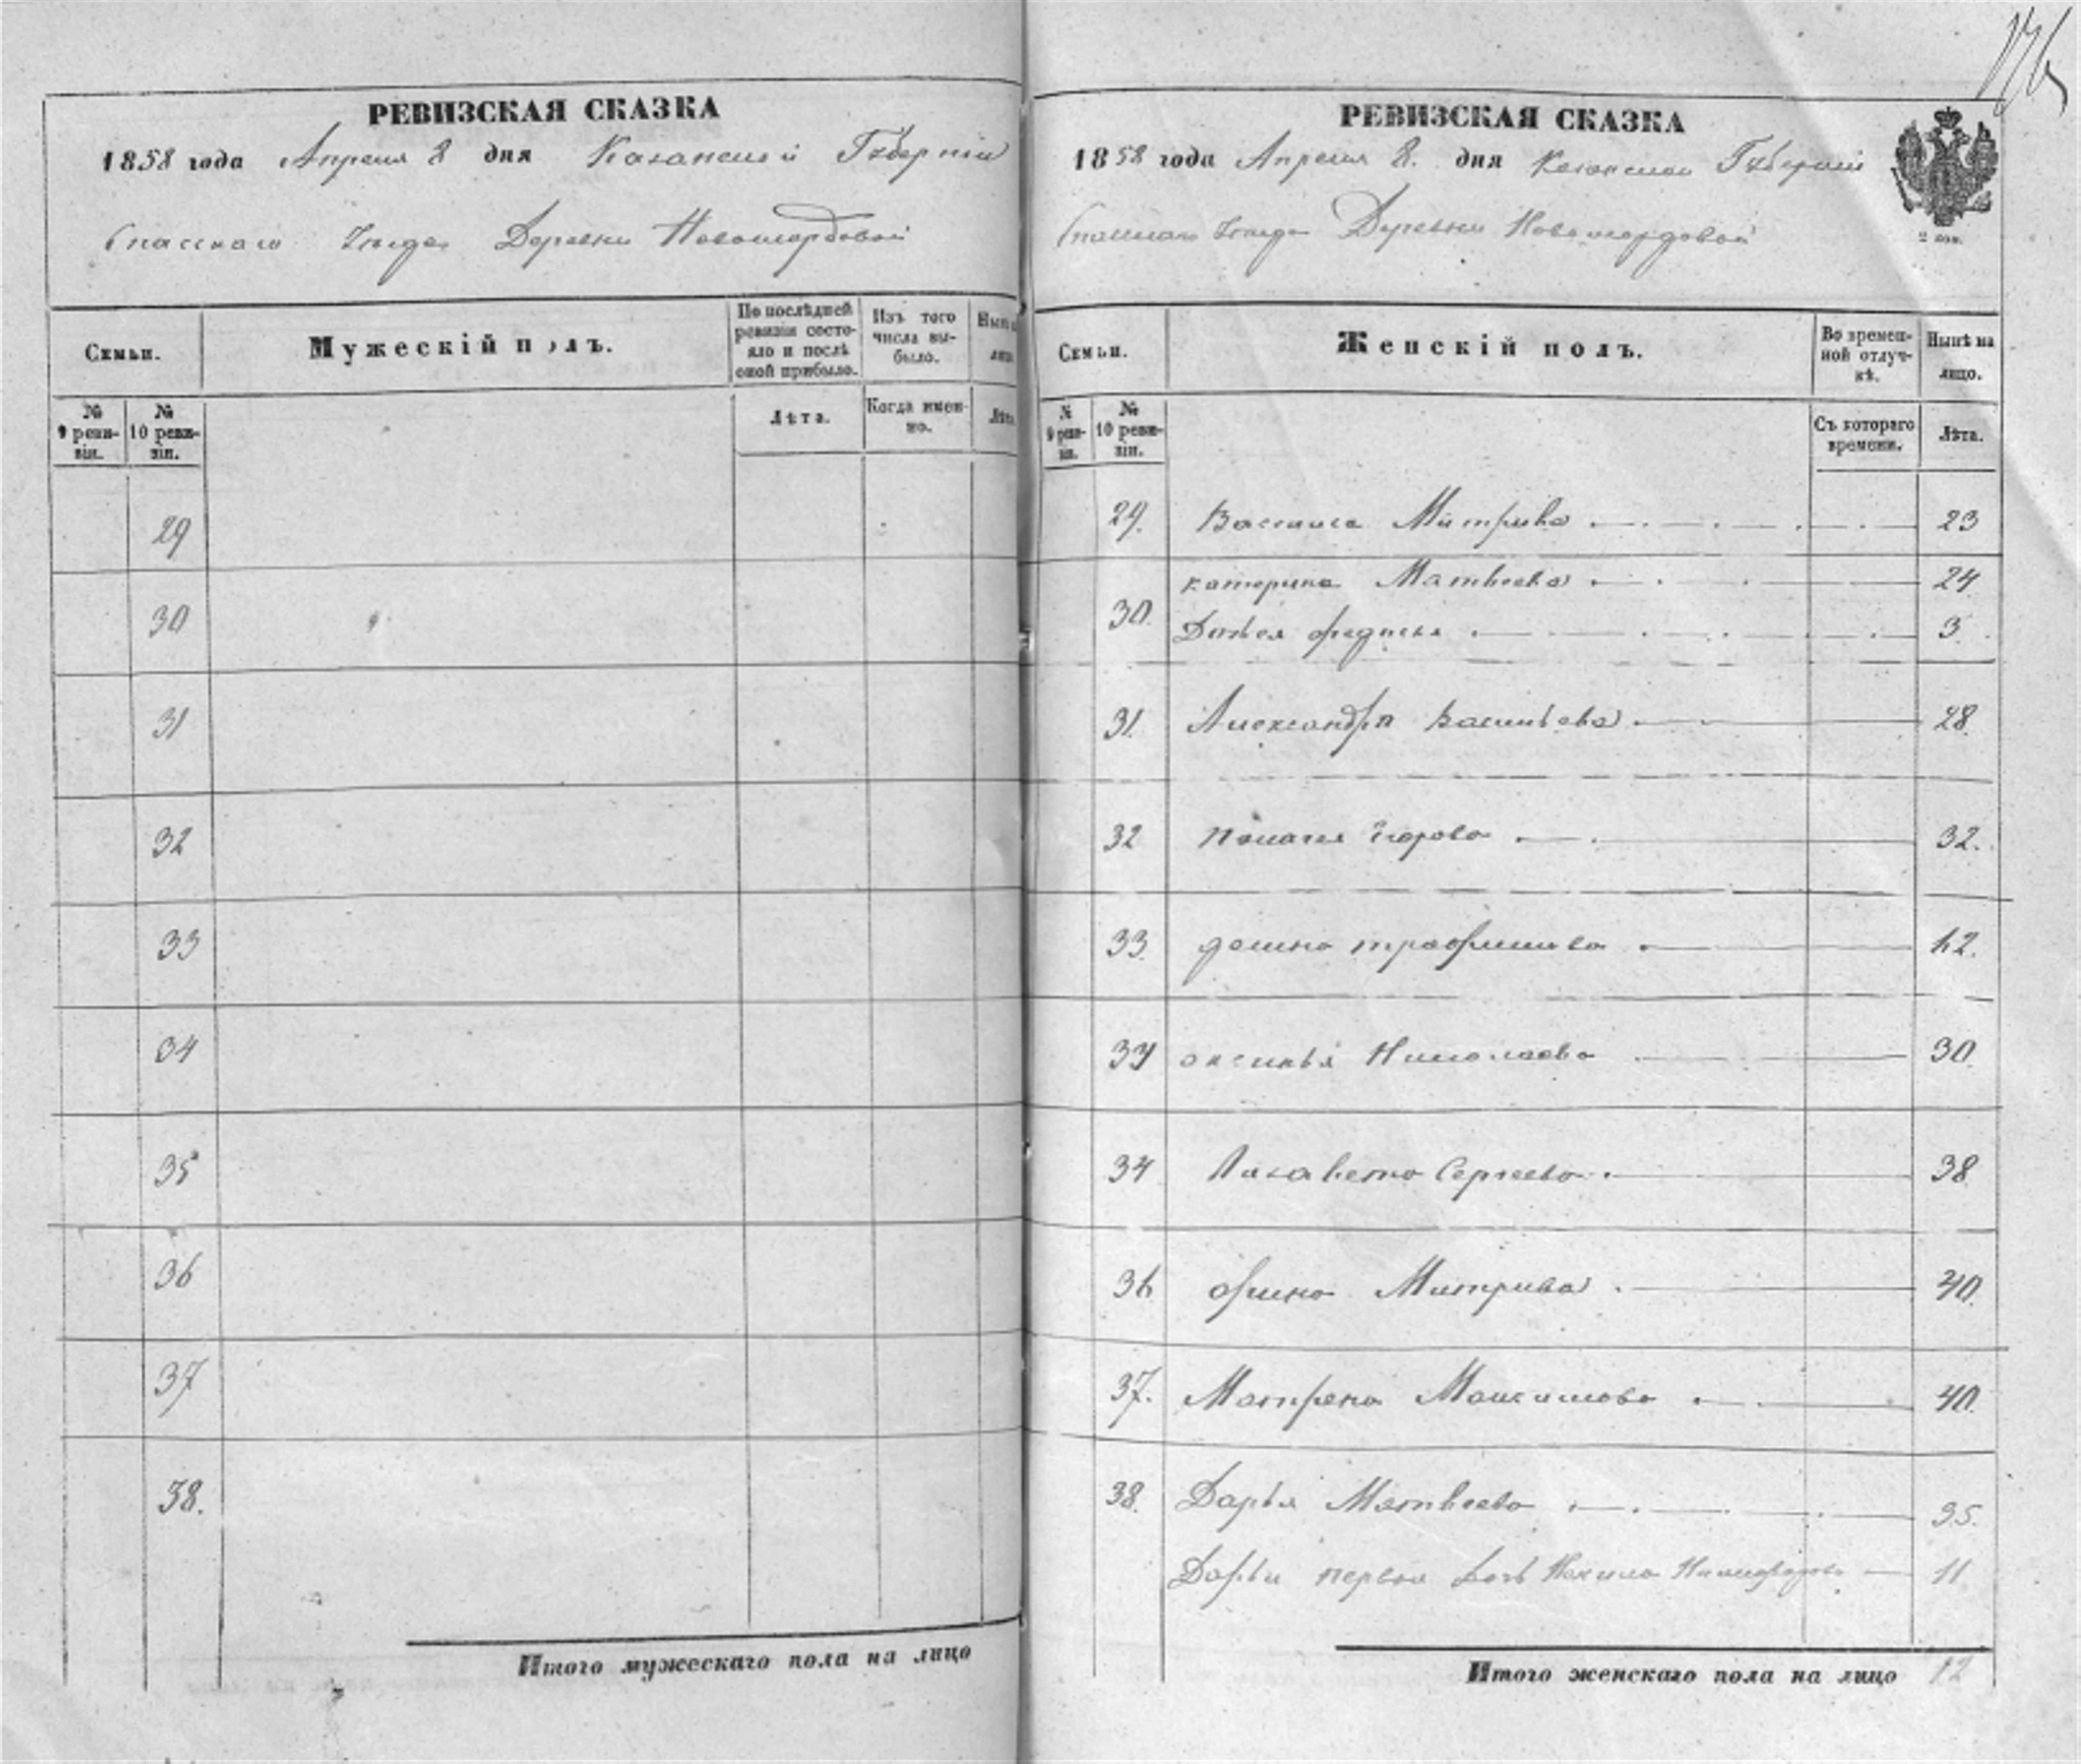 РЕВИЗСКАЯ СКАЗКА
1858 года Апреля 8 дня Казанской Губернии
Спасскаго Уезда Деревни Новомордовой
Семьи.
Мужескій полъ.
По послѣдней ревизіи состояло и послѣ оной прибыло.
Изъ того числа выбыло.
№ 9 ревизіи.
№ 10 ревизіи.
Лѣта.
Когда именно.
Лѣта
29
30
31
32
33
34
35
36
37
38.
Итого мужескаго пола на лицо
176
РЕВИЗСКАЯ СКАЗКА
1858 года Апреля 8. дня Казанской Губернии
Спасскаго Уезда Деревни Новомордовой
2 коп.
Семьи.
Женскій полъ.
Во временной отлучкѣ.
Нынѣ на лицо.
№ 9 ревизіи.
№ 10 ревизіи.
Съ котораго времени.
Лѣта.
29. Василиса Митрива 23
катерина Матвеева 24
30. федосья 3
31. Александра васильева 28
32 Палагея Егорова 32.
33 домна трофимова 42.
34 оксинья Николаева 30
34 Лизавета Сергеева 38
36 Орина Митрива 40
37. Матрена Максимова 40
38. Дарья Матвеева 35.
Дарьи первая дочь 11
Итого женскаго пола на лицо 12